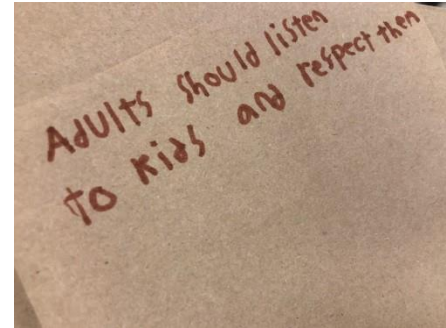 Adults should listen
to kids and respect then